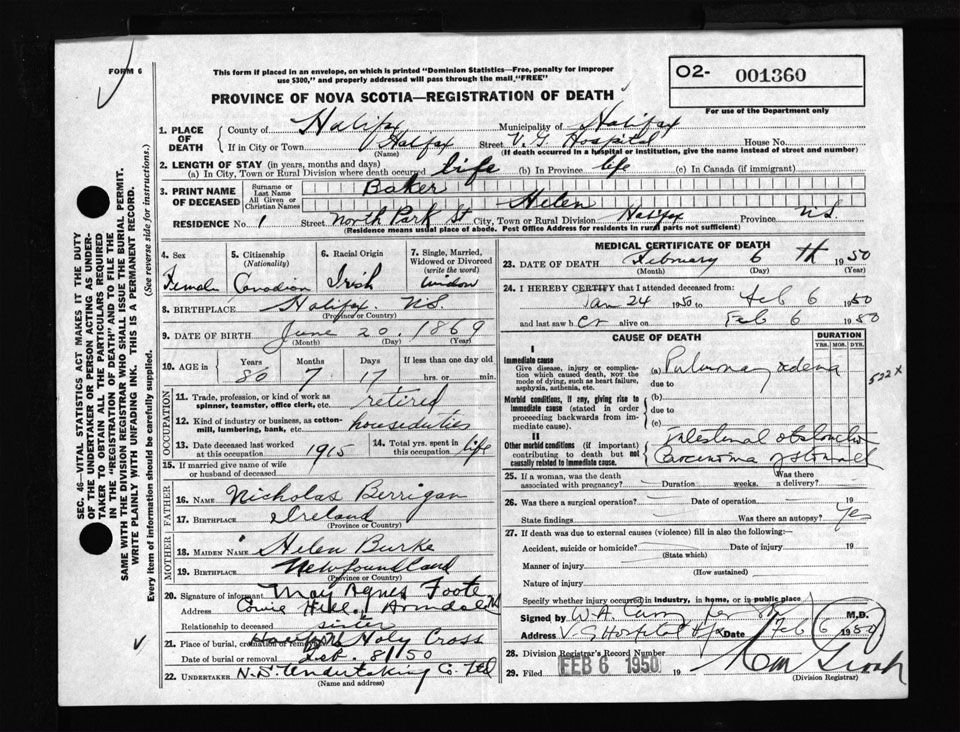 FORM 6
This form if placed in an envelope, on which is printed "Dominion Statistics—Free, penalty for improper
use $300," and properly addressed will pass through the mail, "FREE"
O2- 001360
For use of the Department only
PROVINCE OF NOVA SCOTIA—REGISTRATION OF DEATH
SEC. 46—VITAL STATISTICS ACT MAKES IT THE DUTY
OF THE UNDERTAKER OR PERSON ACTING AS UNDER-
TAKER TO OBTAIN ALL THE PARTICULARS REQUIRED
IN THE "REGISTRATION OF DEATH" AND TO FILE THE
SAME WITH THE DIVISION REGISTRAR WHO SHALL ISSUE THE BURIAL PERMIT.
WRITE PLAINLY WITH UNFADING INK. THIS IS A PERMANENT RECORD.
Every item of information should be carefully supplied. (See reverse side for instructions.)
1. PLACE OF DEATH
County of Halifax Municipality of Halifax
If in City or Town Halifax Street V. G. Hospital House No.
(Name) (If death occurred in a hospital or institution, give the name instead of street and number)
2. LENGTH OF STAY (in years, months and days)
(a) In City, Town or Rural Division where death occurred life (b) In Province life (c) In Canada (if immigrant)
3. PRINT NAME OF DECEASED
Surname or Last Name Baker
All Given or Christian Names Helen
RESIDENCE No. 1 Street North Park St City, Town or Rural Division Halifax Province N.S.
(Residence means usual place of abode. Post Office Address for residents in rural parts not sufficient)
4. Sex Female
5. Citizenship (Nationality) Canadian
6. Racial Origin Irish
7. Single, Married, Widowed or Divorced (write the word) widow
8. BIRTHPLACE Halifax N.S.
(Province or Country)
9. DATE OF BIRTH June 20. 1869
(Month) (Day) (Year)
10. AGE in Years 80 Months 7 Days 17 If less than one day old
hrs. or min.
OCCUPATION
11. Trade, profession or kind of work as
spinner, teamster, office clerk, etc. retired
12. Kind of industry or business, as cotton-
mill, lumbering, bank, etc. houseduties
13. Date deceased last worked
at this occupation 1915
14. Total yrs. spent in
this occupation life
15. If married give name of wife
or husband of deceased
FATHER
16. NAME Nicholas Berrigan
17. BIRTHPLACE Ireland
(Province or Country)
MOTHER
18. MAIDEN NAME Helen Burke
19. BIRTHPLACE Newfoundland
(Province or Country)
20. Signature of informant May Agnes Foote
Address Cowie Hill, Armdale
Relationship to deceased sister
21. Place of burial, cremation or removal Holy Cross
Date of burial or removal Feb. 8/50
22. UNDERTAKER N.S. Undertaking Co. Ltd
(Name and address)
MEDICAL CERTIFICATE OF DEATH
23. DATE OF DEATH February 6 th 1950
(Month) (Day) (Year)
24. I HEREBY CERTIFY that I attended deceased from:
Jan 24 1950 to Feb 6 1950
and last saw her alive on Feb 6 1950
CAUSE OF DEATH DURATION
YRS. MOS. DYS.
I
Immediate cause
Give disease, injury or complica-
tion which caused death, NOT the
mode of dying, such as heart failure,
asphyxia, asthenia, etc.
(a) Pulmonary oedema 522X
due to
Morbid conditions, if any, giving rise to
immediate cause (stated in order
proceeding backwards from im-
mediate cause).
(b)
due to
(c)
II
Other morbid conditions (if important)
contributing to death but not
causally related to immediate cause.
Intestinal obstruction
Carcinoma of stomach
25. If a woman, was the death
associated with pregnancy? Duration weeks. Was there a delivery?
26. Was there a surgical operation? Date of operation 19
State findings Was there an autopsy? Yes
27. If death was due to external causes (violence) fill in also the following:—
Accident, suicide or homicide? Date of injury 19
(State which)
Manner of injury
(How sustained)
Nature of injury
Specify whether injury occurred in industry, in home, or in public place
Signed by W.A. M.D.
Address V.G Hospital Hfx Date Feb 6 1950
28. Division Registrar's Record Number
29. Filed FEB 6 1950 19
(Division Registrar)